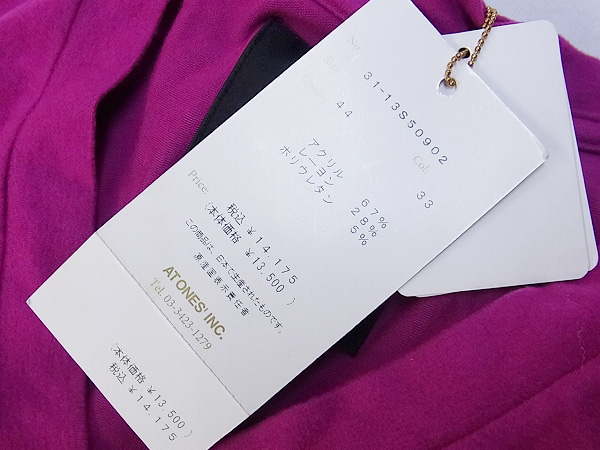 No. 31-13S50902
Size 44
Col. 33
アクリル 67%
レーヨン 28%
ポリウレタン 5%
Price
税込 ¥14,175
(本体価格 ¥13,500)
この商品は、日本で生産されたものです。
原産国表示責任者
ATONES' INC.
Tel. 03-3423-1279
(本体価格 ¥13,500)
税込 ¥14,175